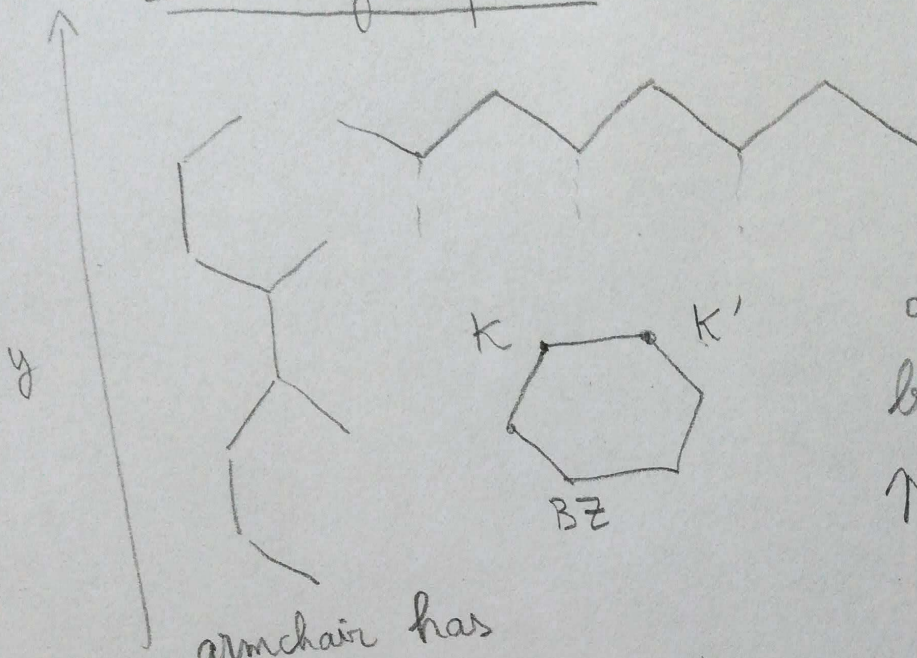 K K'
y
BZ
armchair has